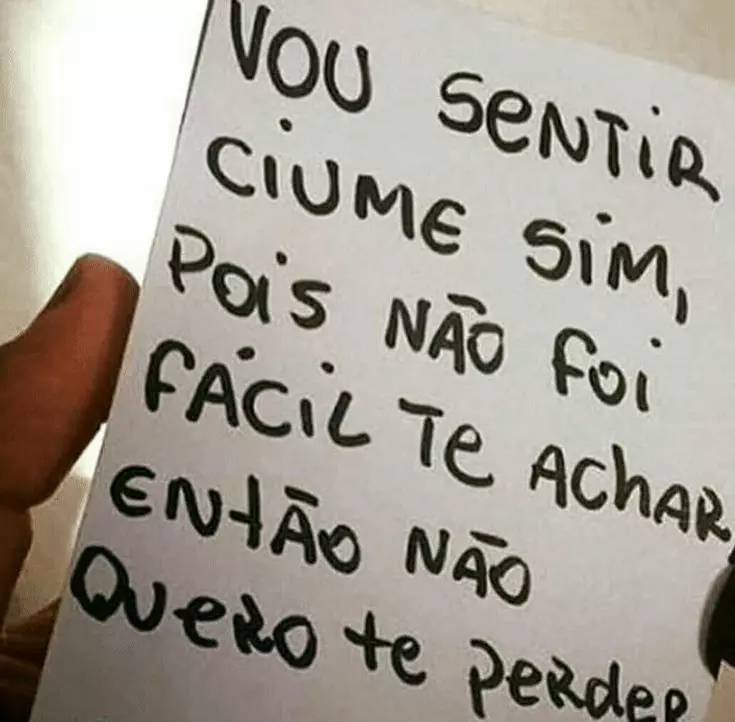 VOU SENTIR
CIUME SIM,
POIS NÃO FOI
FÁCIL TE ACHAR,
ENTÃO NÃO
QUERO TE PERDER